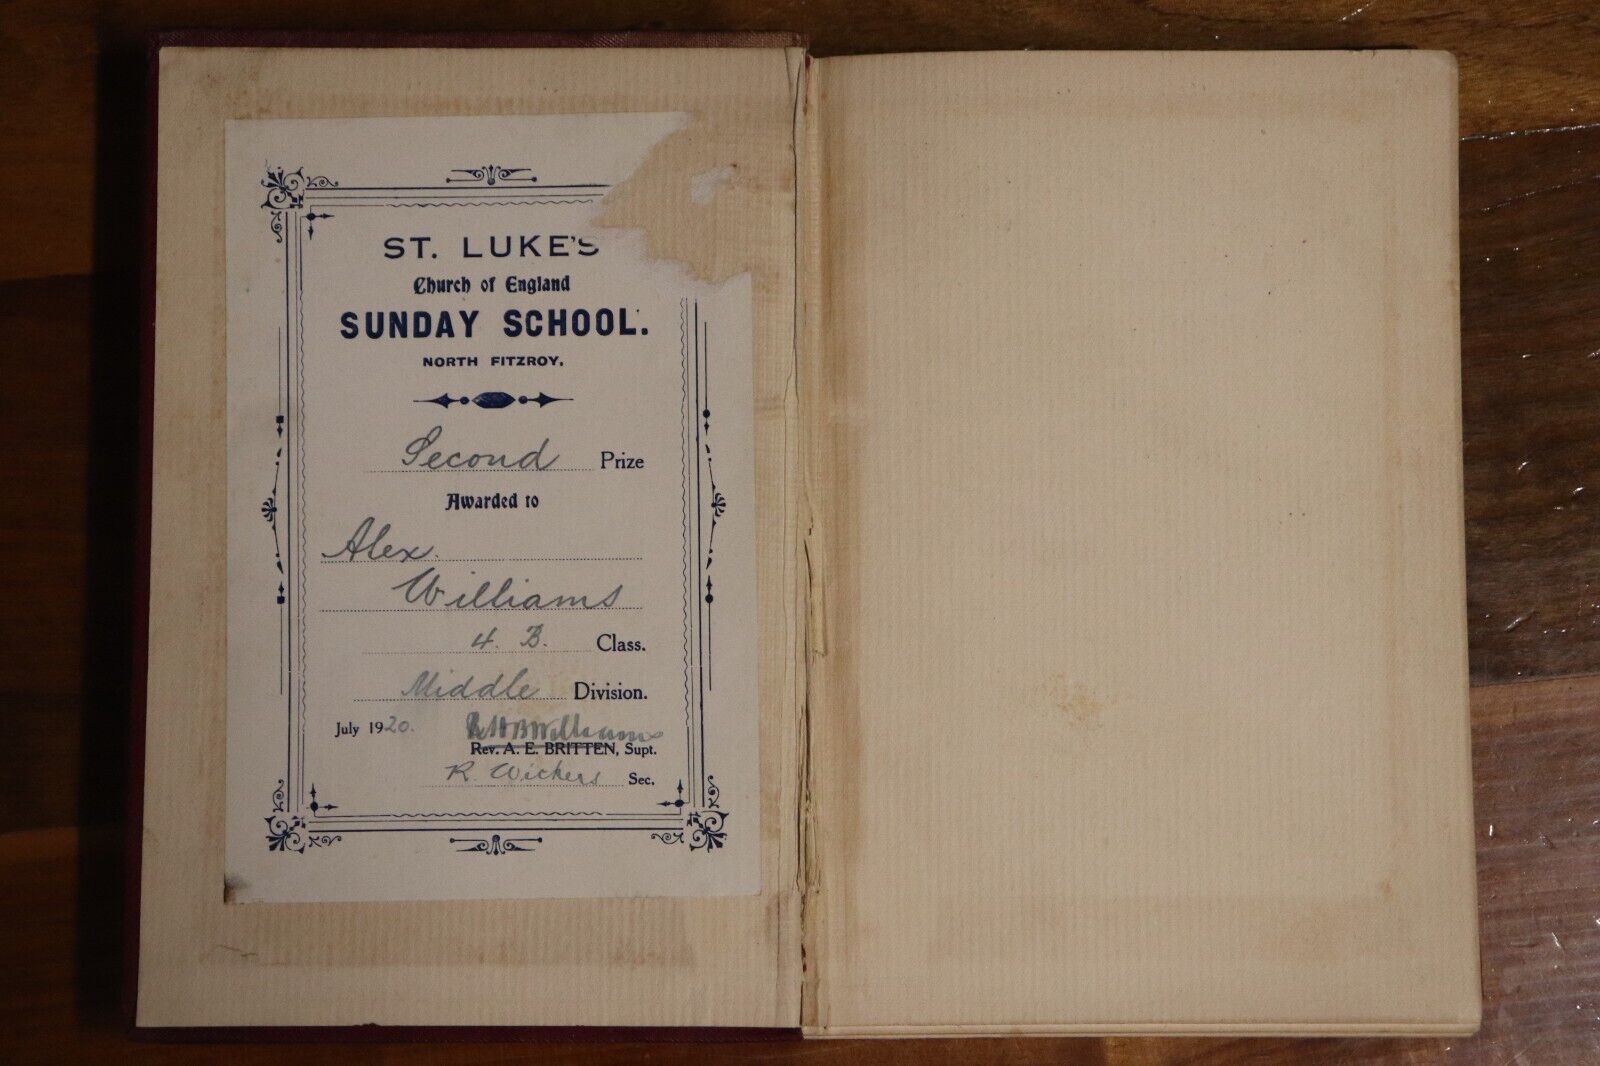 ST. LUKE'S
Church of England
SUNDAY SCHOOL.
NORTH FITZROY.
Second Prize
Awarded to
Alex.
Williams
4. B. Class.
Middle Division.
July 1920. Williams
Rev. A. E. BRITTEN, Supt.
R. Wickers Sec.